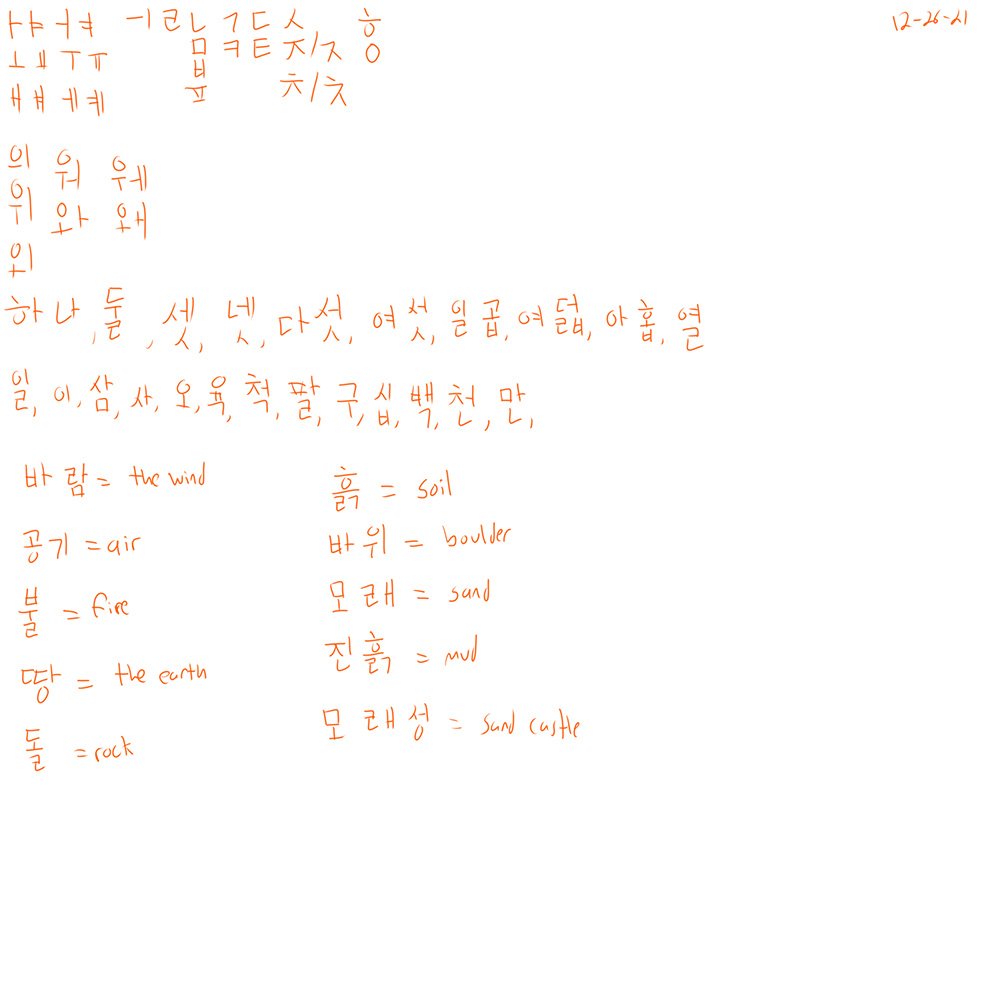 ㅏㅑㅓㅕ ㅡㅣㄹㄴㄱㄷㅅ ㅎ 12-26-21
ㅗㅛㅜㅠ ㅁㅋㅌㅈ/ㅈ ㅇ
ㅂ
ㅐㅒㅔㅖ ㅍ ㅊ/ㅊ
의 워 웨
위 와 왜
외
하나, 둘, 셋, 넷, 다섯, 여섯, 일곱, 여덟, 아홉, 열
일, 이, 삼, 사, 오, 육, 척, 팔, 구, 십, 백, 천, 만,
바람 = the wind
공기 = air
불 = fire
땅 = the earth
돌 = rock
흙 = soil
바위 = boulder
모래 = sand
진흙 = mud
모래성 = sand castle